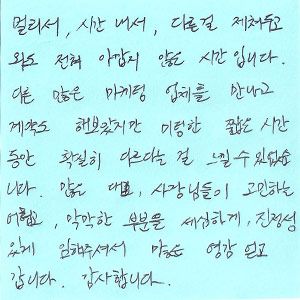 멀리서, 시간 내서, 다른걸 제쳐두고
와도 전혀 아깝지 않은 시간입니다.
다른 많은 마케팅 업체를 만나고
계약도 해보았지만 미팅한 짧은 시간
동안 확실히 다르다는 걸 느낄 수 있었습
니다. 많은 대표, 사장님들이 고민하는
어려움, 막막한 부분을 세심하게, 진정성
있게 임해주셔서 많은 영감 얻고
갑니다. 감사합니다.